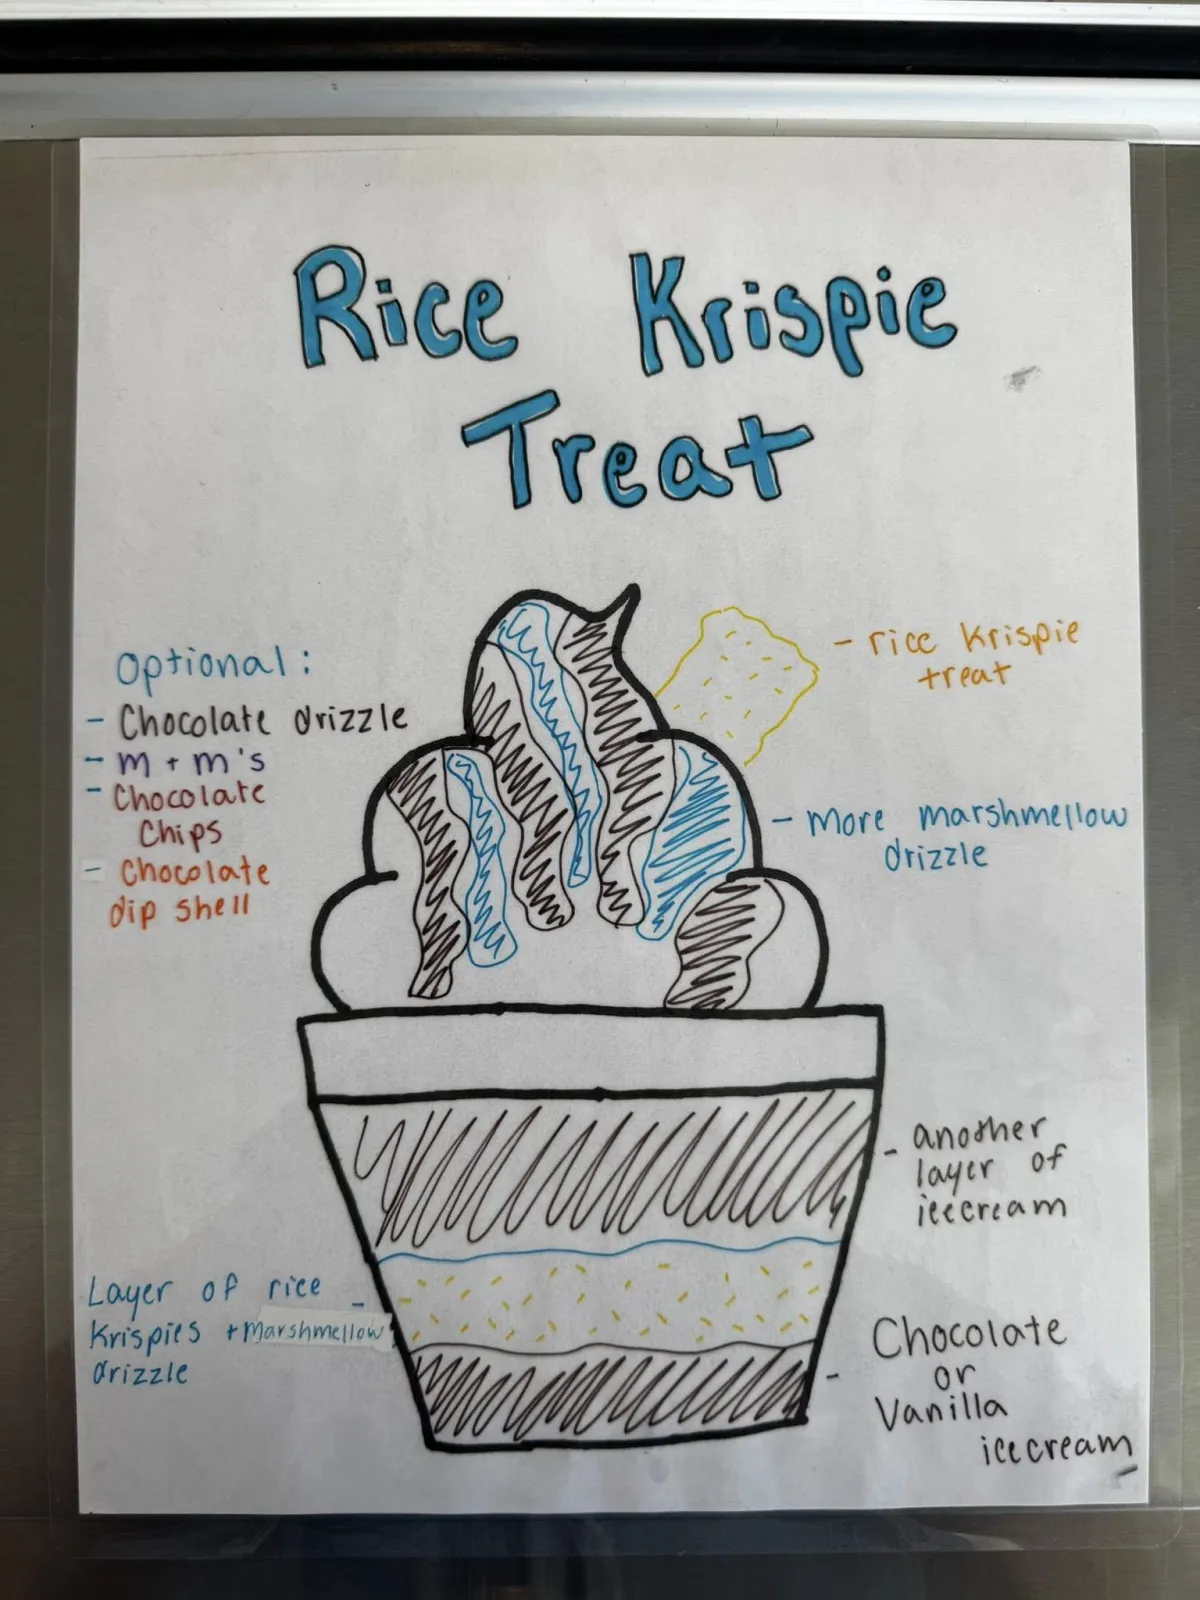 Rice Krispie
Treat
Optional:
- Chocolate drizzle
- m + m's
- Chocolate
Chips
- Chocolate
dip shell
- rice krispie
treat
- more marshmellow
drizzle
- another
layer of
icecream
Layer of rice -
Krispies + Marshmellow
drizzle
- Chocolate
or
Vanilla
icecream